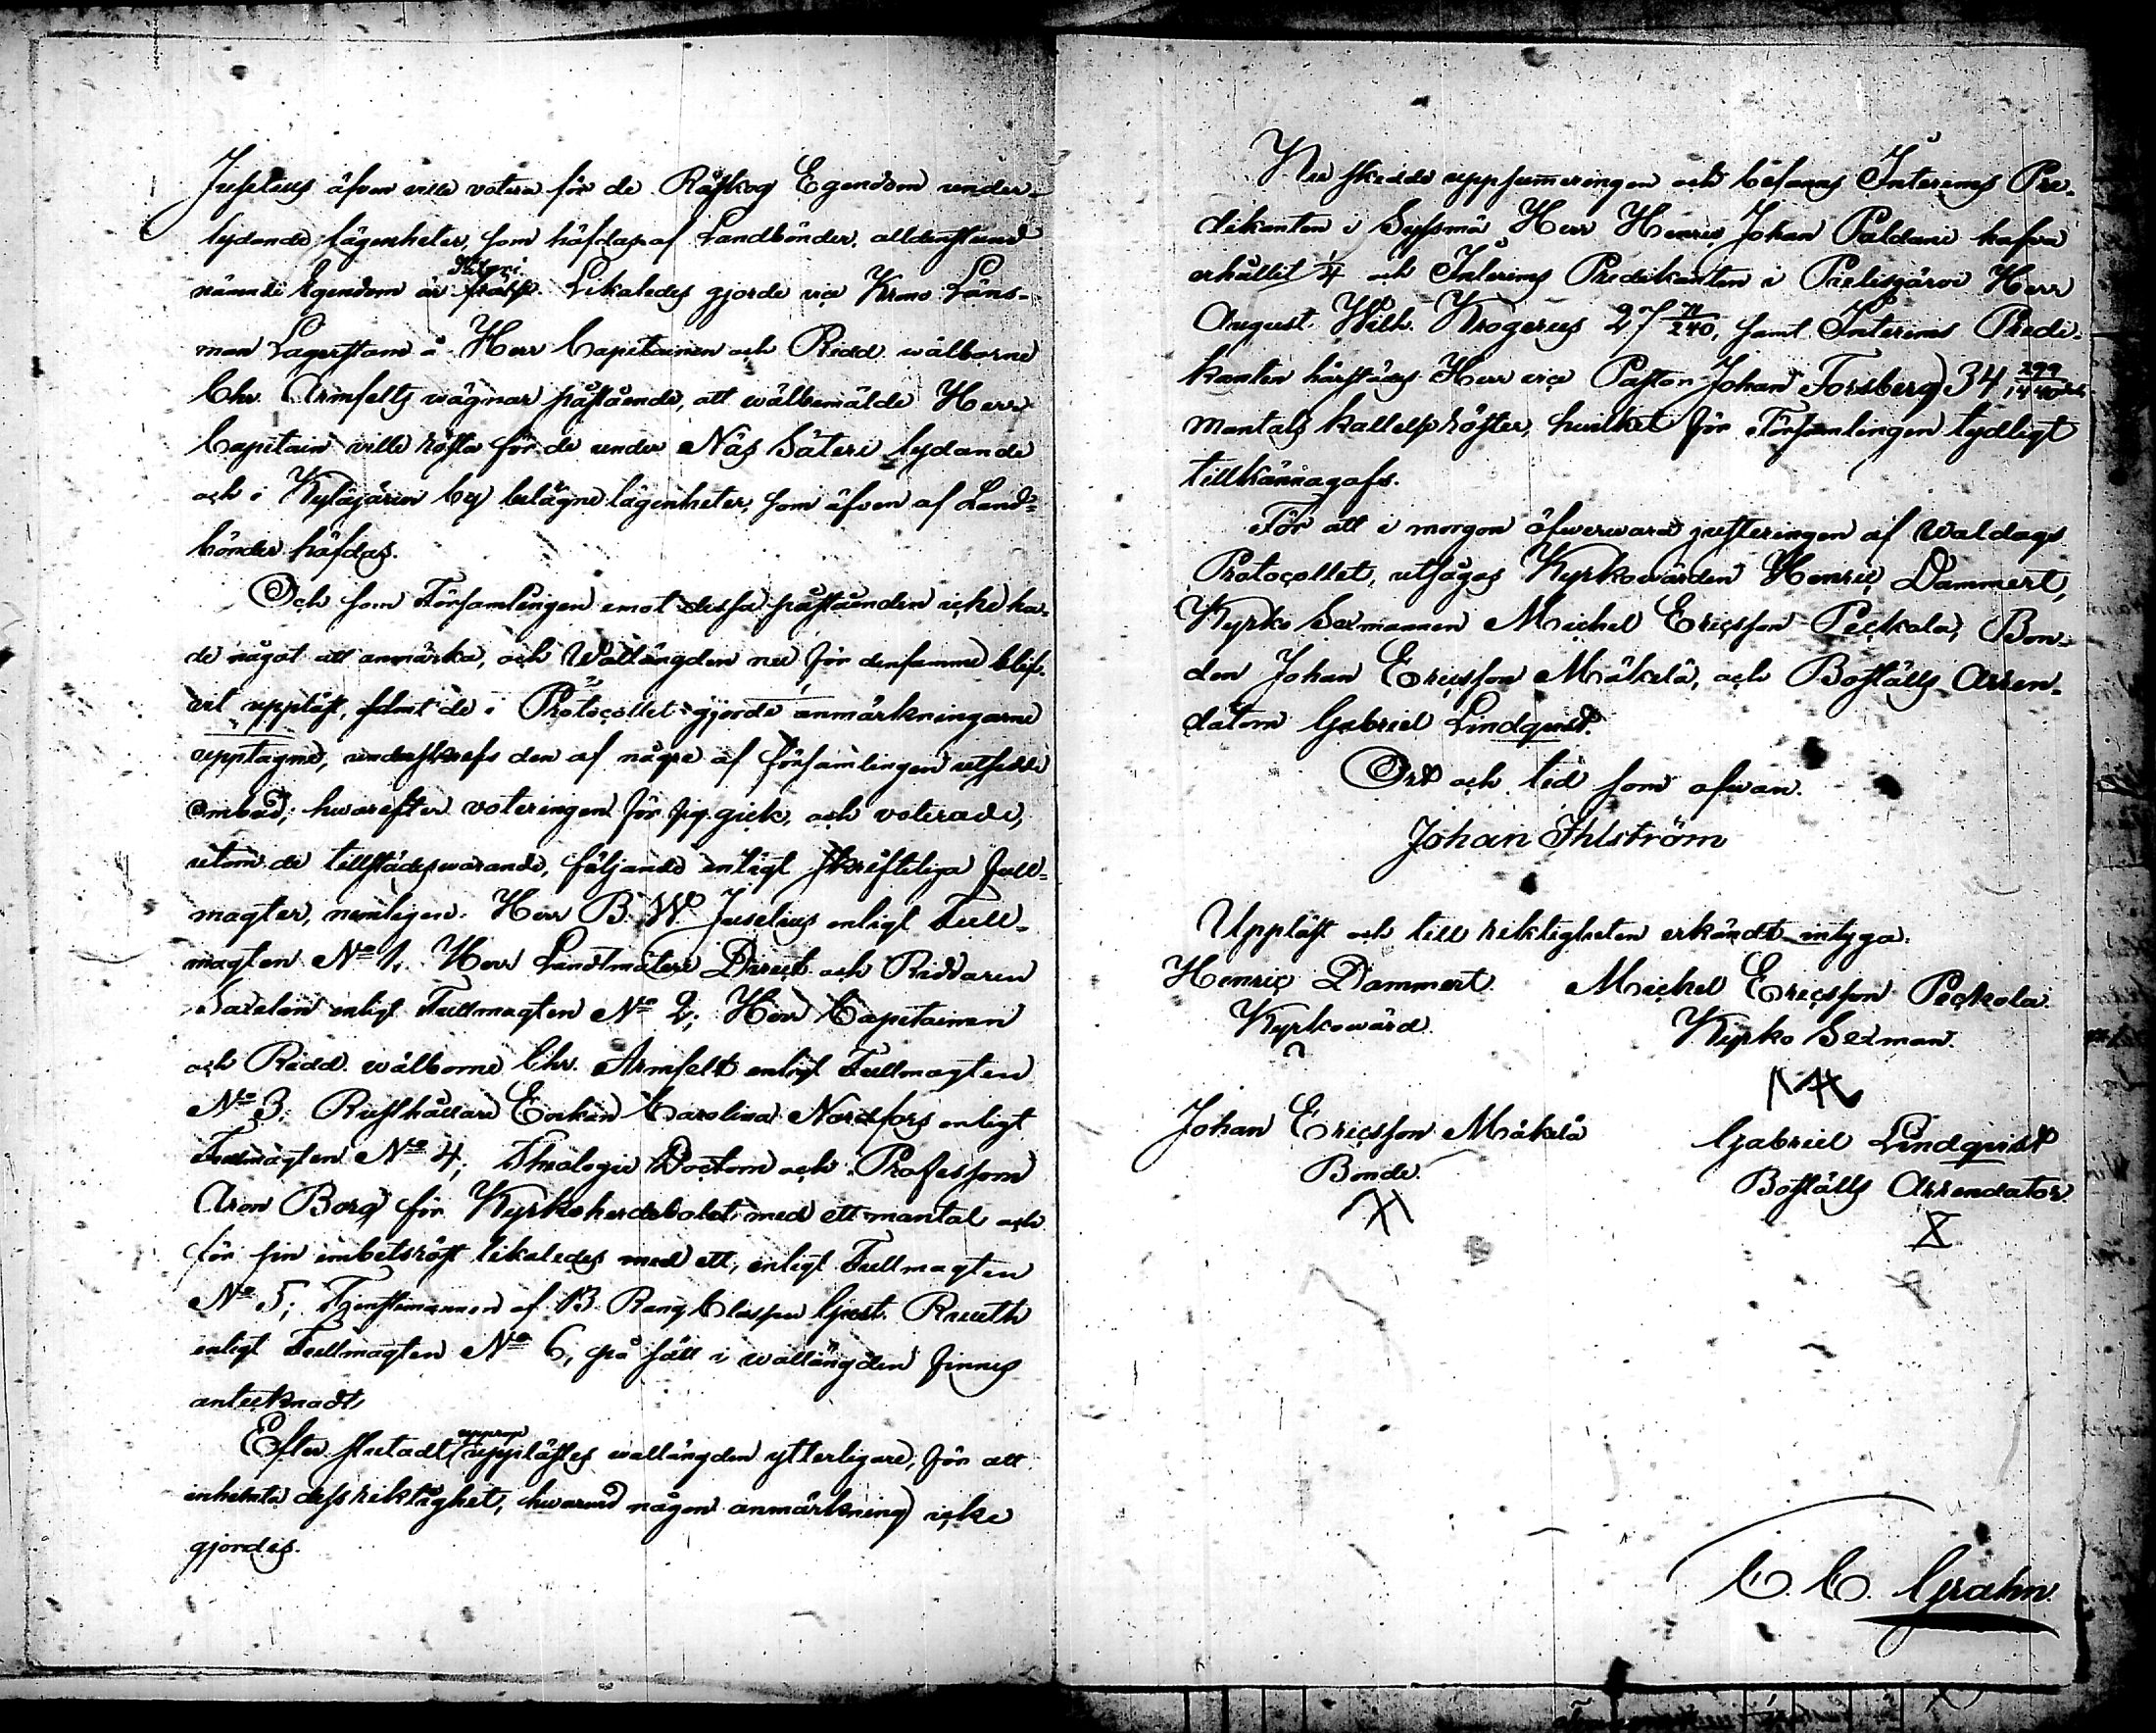 Juselius äfven ville votera för de Råskog Egendom under-
lydande lägenheter, som häfdas af Landbönder, alldenstund
Säteri.
nämnde Egendom är frälse. Likaledes gjorde vice Krono Läns-
man Lagerstam å Herr Capitainen och Ridd. wälborne
Chr. Armfelts wägnar påstående, att wälbemälde Herr
Capitain ville rösta för de under Näs Säteri lydande
och i Kyläjärvi by belägne lägenheter, som äfven af Land-
bönder häfdas.
Och som Församlingen emot dessa påståenden icke ha-
de något att anmärka, och Wallängden nu för densamme blif-
vit uppläst, samt de i Protocollet gjorde anmärkningarne
upptagne, underskrefs den af någre af församlingen utsedde
ombud; hwarefter voteringen för sig gick, och voterade,
utom de tillstädeswarande, följande enligt skriftliga full-
magter, nemligen: Herr B. W. Juselius enligt Full-
magten No 1, Herr Landtmäteri Direct. och Riddaren
enligt Fullmagten No 2; Herr Capitainen
och Ridd. wälborne Chr. Armfelt enligt Fullmagten
No 3; Rusthållare Enkan Carolina Nordfors enligt
Fullmagten No 4; Theologie Doctorn och Professorn
Aron Borg för Kyrkoherdebolet med ett mantal och
för sin embetsröst likaledes med ett, enligt Fullmagten
No 5; Tjenstemannen af 13 Rang Classen Gust. Rneuth
enligt Fullmagten No 6, på sätt i wallängden finnes
anteeknadt.
upprop
Efter slutadt upplästes wallängden ytterligare, för att
inhemta dess riktighet, hwarwid någon anmärkning icke
gjordes.
Nu skedde uppsummeringen och befanns Interims Pre-
dikanten i Sysmä Herr Henric Johan Paldani hafva
erhållit 1/4 och Interims Predikanten i Pielisjärvi Herr
August Wilh. Krogerus 27 71/240, samt Interims Predi-
kanten härstädes Herr vice Pastor Johan Forsberg 34 299/1440 dels
mantals kallelse röster, hwilket för Församlingen tydligt
tillkännagafs.
För att i morgon öfwerwara justeringen af Waldags
Protocollet, utsågos Kyrkowärden Henric Dammert,
Kyrko Sexmannen Michel Ericsson Peckola, Bon-
den Johan Ericsson Mäkelä, och Boställs Arren-
datorn Gabriel Lindqvist.
Ort och tid som ofwan.
Johan Ihlström
Uppläst och till riktigheten erkändt intyga.
Henric Dammert. Michel Ericsson Peckola.
Kyrkowärd. Kyrko Sexman.
Johan Ericsson Mäkelä Gabriel Lindqvist
Bonde. Boställs Arrendator.
C. C. Grahn.